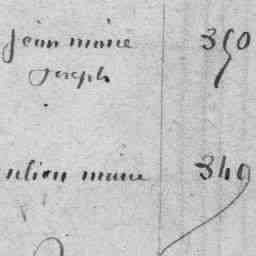 jean marie 350
joseph
marie 349